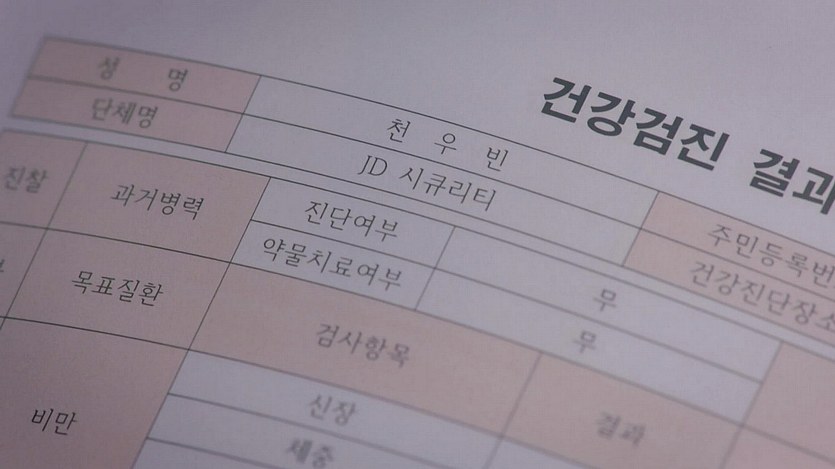 건강검진 결과
성 명 천 우 빈 주민등록번
단체명 JD 시큐리티 건강진단장소
진찰 과거병력 진단여부 무
약물치료여부 무
목표질환 검사항목 결과
비만 신장
체중